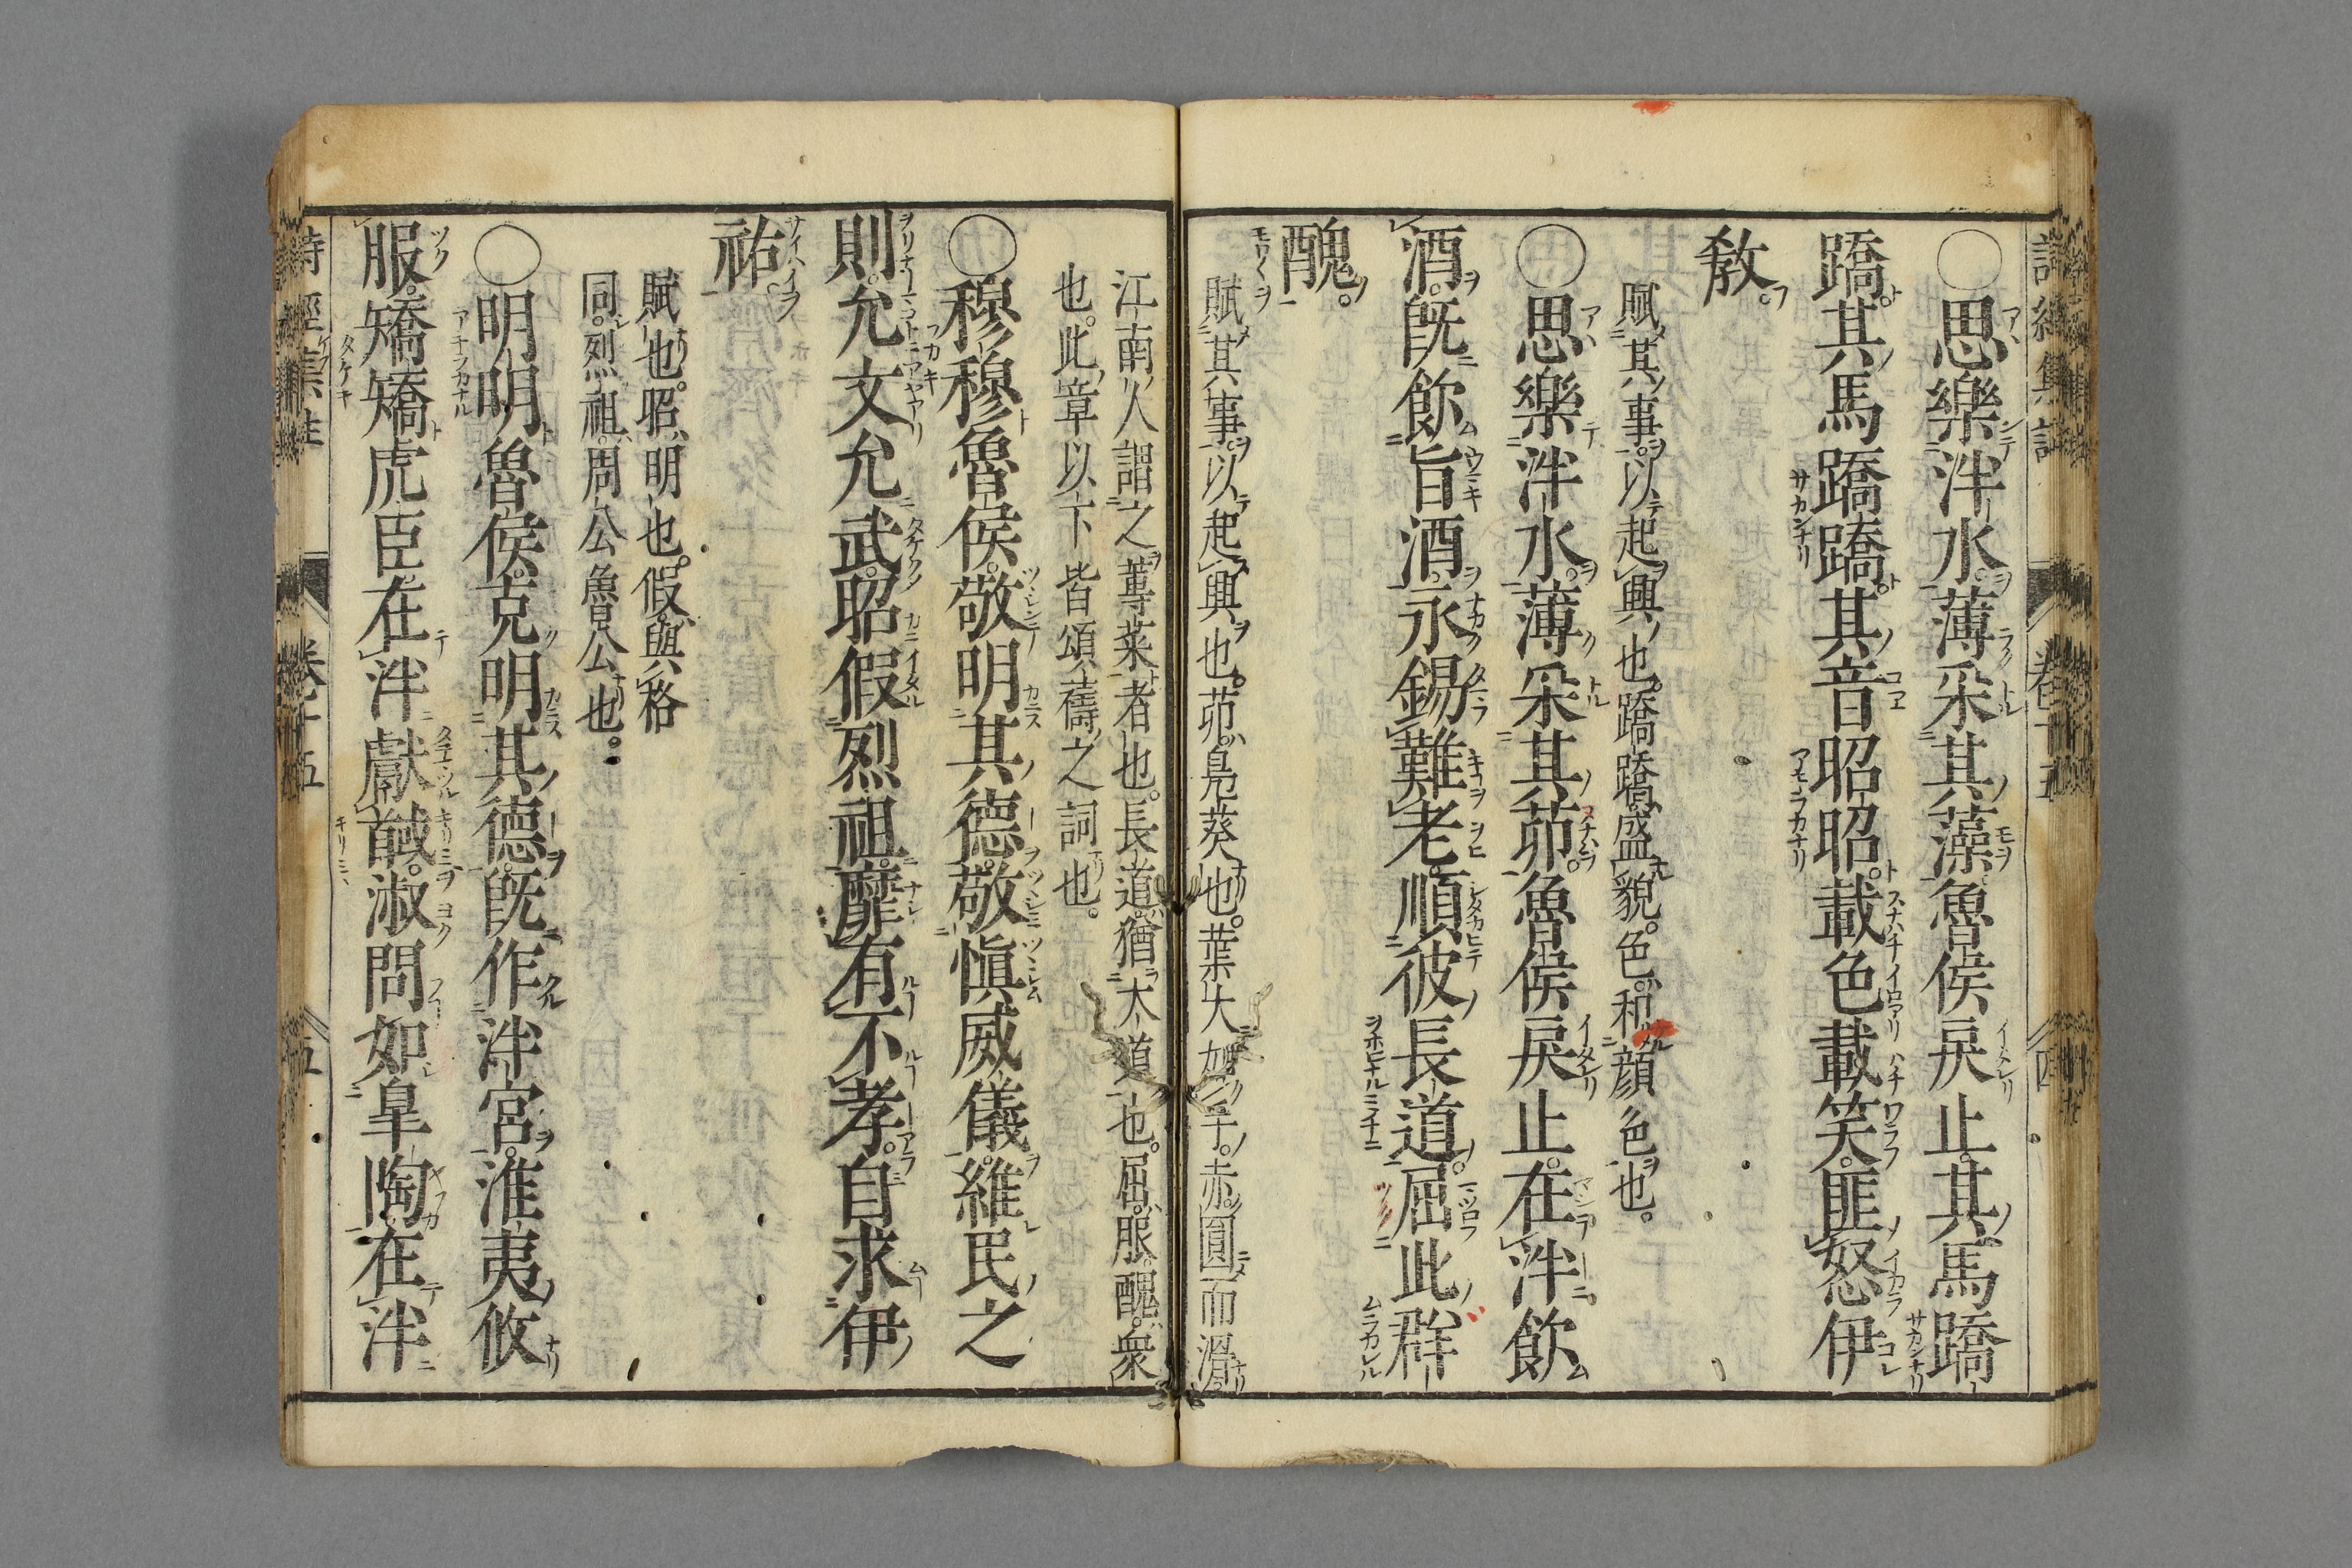 詩經集註 卷十五 四
○思樂泮水。薄采其藻。魯侯戾止。其馬蹻
蹻。其馬蹻蹻。其音昭昭。載色載笑。匪怒伊
敎。
賦其事以起興也。蹻蹻盛貌。色和顏色也。
○思樂泮水。薄采其茆。魯侯戾止。在泮飮
酒。旣飮旨酒。永錫難老。順彼長道。屈此群
醜。
賦其事以起興也。茆鳧葵也。葉大如手。赤圓而滑。
江南人謂之蓴菜者也。長道猶大道也。屈服。醜衆
也。此章以下皆頌禱之詞也。
○穆穆魯侯。敬明其德。敬愼威儀。維民之
則。允文允武。昭假烈祖。靡有不孝。自求伊
祜。
賦也。昭明也。假與格
同。烈祖周公魯公也。
○明明魯侯。克明其德。旣作泮宮。淮夷攸
服。矯矯虎臣。在泮獻馘。淑問如皐陶。在泮
詩經集註 卷十五 五